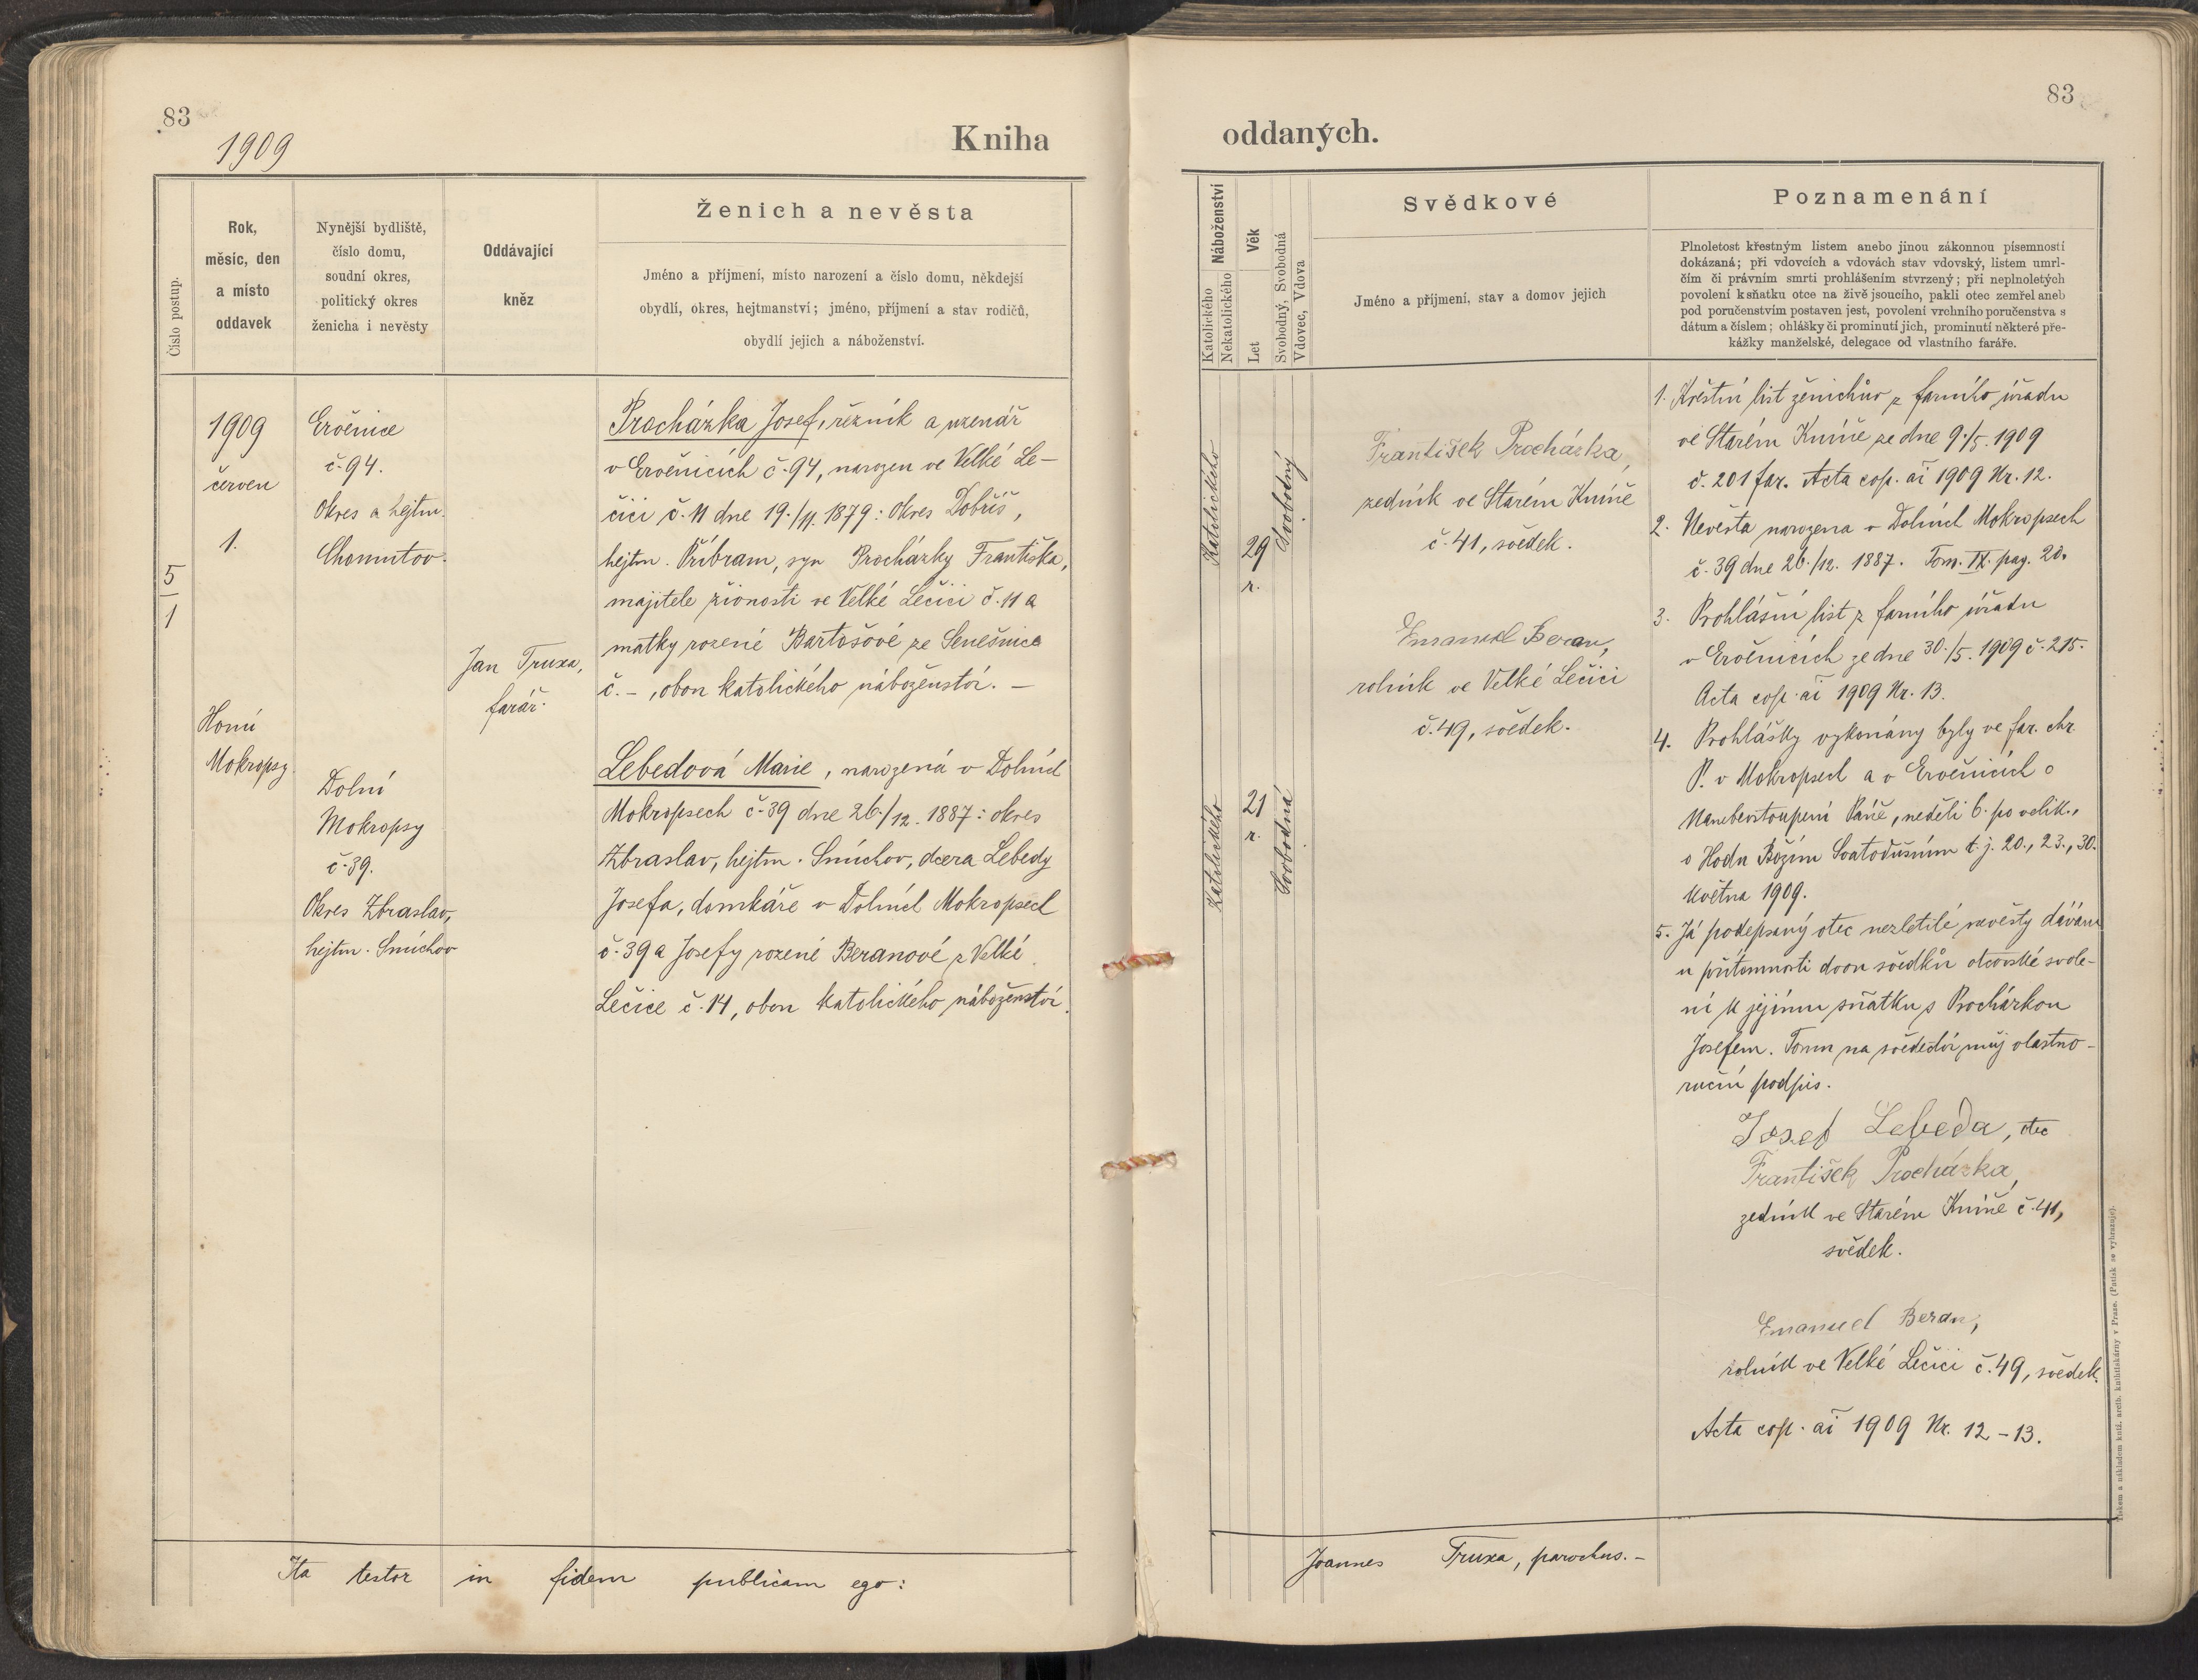 83
1909
Kniha
Číslo postup.
Rok,
měsíc, den
a místo
oddavek
Nynější bydliště,
číslo domu,
soudní okres,
politický okres
ženicha i nevěsty
Oddávající
kněz
Ženich a nevěsta
Jméno a příjmení, místo narození a číslo domu, někdejší
obydlí, okres, hejtmanství; jméno, příjmení a stav rodičů,
obydlí jejich a náboženství.
5
1
1909
červen
1.
Horní
Mokropsy
Ervěnice
č. 94.
Okres a hejtm.
Chomutov.
Dolní
Mokropsy
č. 39.
Okres Zbraslav,
hejtm. Smíchov
Jan Truxa,
farář.
Procházka Josef, řezník a uzenář
v Ervěnicích č. 94, narozen ve Velké Le-
čici č. 11 dne 19./11. 1879: Okres Dobříš,
hejtm. Příbram, syn Procházky Františka,
majitele živnosti ve Velké Lečici č. 11 a
matky rozené Bartošové ze Senešnice
č. –, obou katolického náboženství. –
Lebedová Marie, narozená v Dolních
Mokropsech č. 39 dne 26./12. 1887: okres
Zbraslav, hejtm. Smíchov, dcera Lebedy
Josefa, domkáře v Dolních Mokropsech
č. 39 a Josefy rozené Beranové z Velké
Lečice č. 14, obou katolického náboženství.
Ita testor in fidem publicam ego:
83
oddaných.
Náboženství
Katolického
Nekatolického
Věk
Let
Svobodný, Svobodná
Vdovec, Vdova
Svědkové
Jméno a příjmení, stav a domov jejich
Poznamenání
Plnoletost křestným listem anebo jinou zákonnou písemností
dokázaná; při vdovcích a vdovách stav vdovský, listem umrl-
čím či právním smrti prohlášením stvrzený; při neplnoletých
povolení k sňatku otce na živě jsoucího, pakli otec zemřel aneb
pod poručenstvím postaven jest, povolení vrchního poručenstva s
dátum a číslem; ohlášky či prominutí jich, prominutí některé pře-
kážky manželské, delegace od vlastního faráře.
Katolického
29
r.
Svobodný
Katolického
21
r.
Svobodná
František Procházka,
zedník ve Starém Kníně
č. 41, svědek.
Emanuel Beran,
rolník ve Velké Lečici
č. 49, svědek.
1. Křestní list ženichův z farního úřadu
ve Starém Kníně ze dne 9./5. 1909
č. 201 far. Acta cop. ai 1909 Nr. 12.
2. Nevěsta narozena v Dolních Mokropsech
č. 39 dne 26./12. 1887. Tom. IX. pag. 20.
3. Prohlášní list z farního úřadu
v Ervěnicích ze dne 30./5. 1909 č. 215.
Acta cop. ai 1909 Nr. 13.
4. Prohlášky vykonány byly ve far. chr.
P. v Mokropsech a v Ervěnicích o
Nanebevstoupení Páně, neděli 6. po velik.,
o Hodu Božím Svatodušním t. j. 20., 23., 30.
května 1909.
5. Já podepsaný otec nezletilé nevěsty dávám
u přítomnosti dvou svědků otcovské svole-
ní k jejímu sňatku s Procházkou
Josefem. Tomu na svědectví můj vlastno-
ruční podpis.
Josef Lebeda, otec
František Procházka,
zedník ve Starém Kníně č. 41,
svědek.
Emanuel Beran,
rolník ve Velké Lečici č. 49, svědek.
Acta cop. ai 1909 Nr. 12–13.
Joannes Truxa, parochus. –
Tiskem a nákladem kníž. arcib. knihtiskárny v Praze. (Patisk se vyhrazuje).